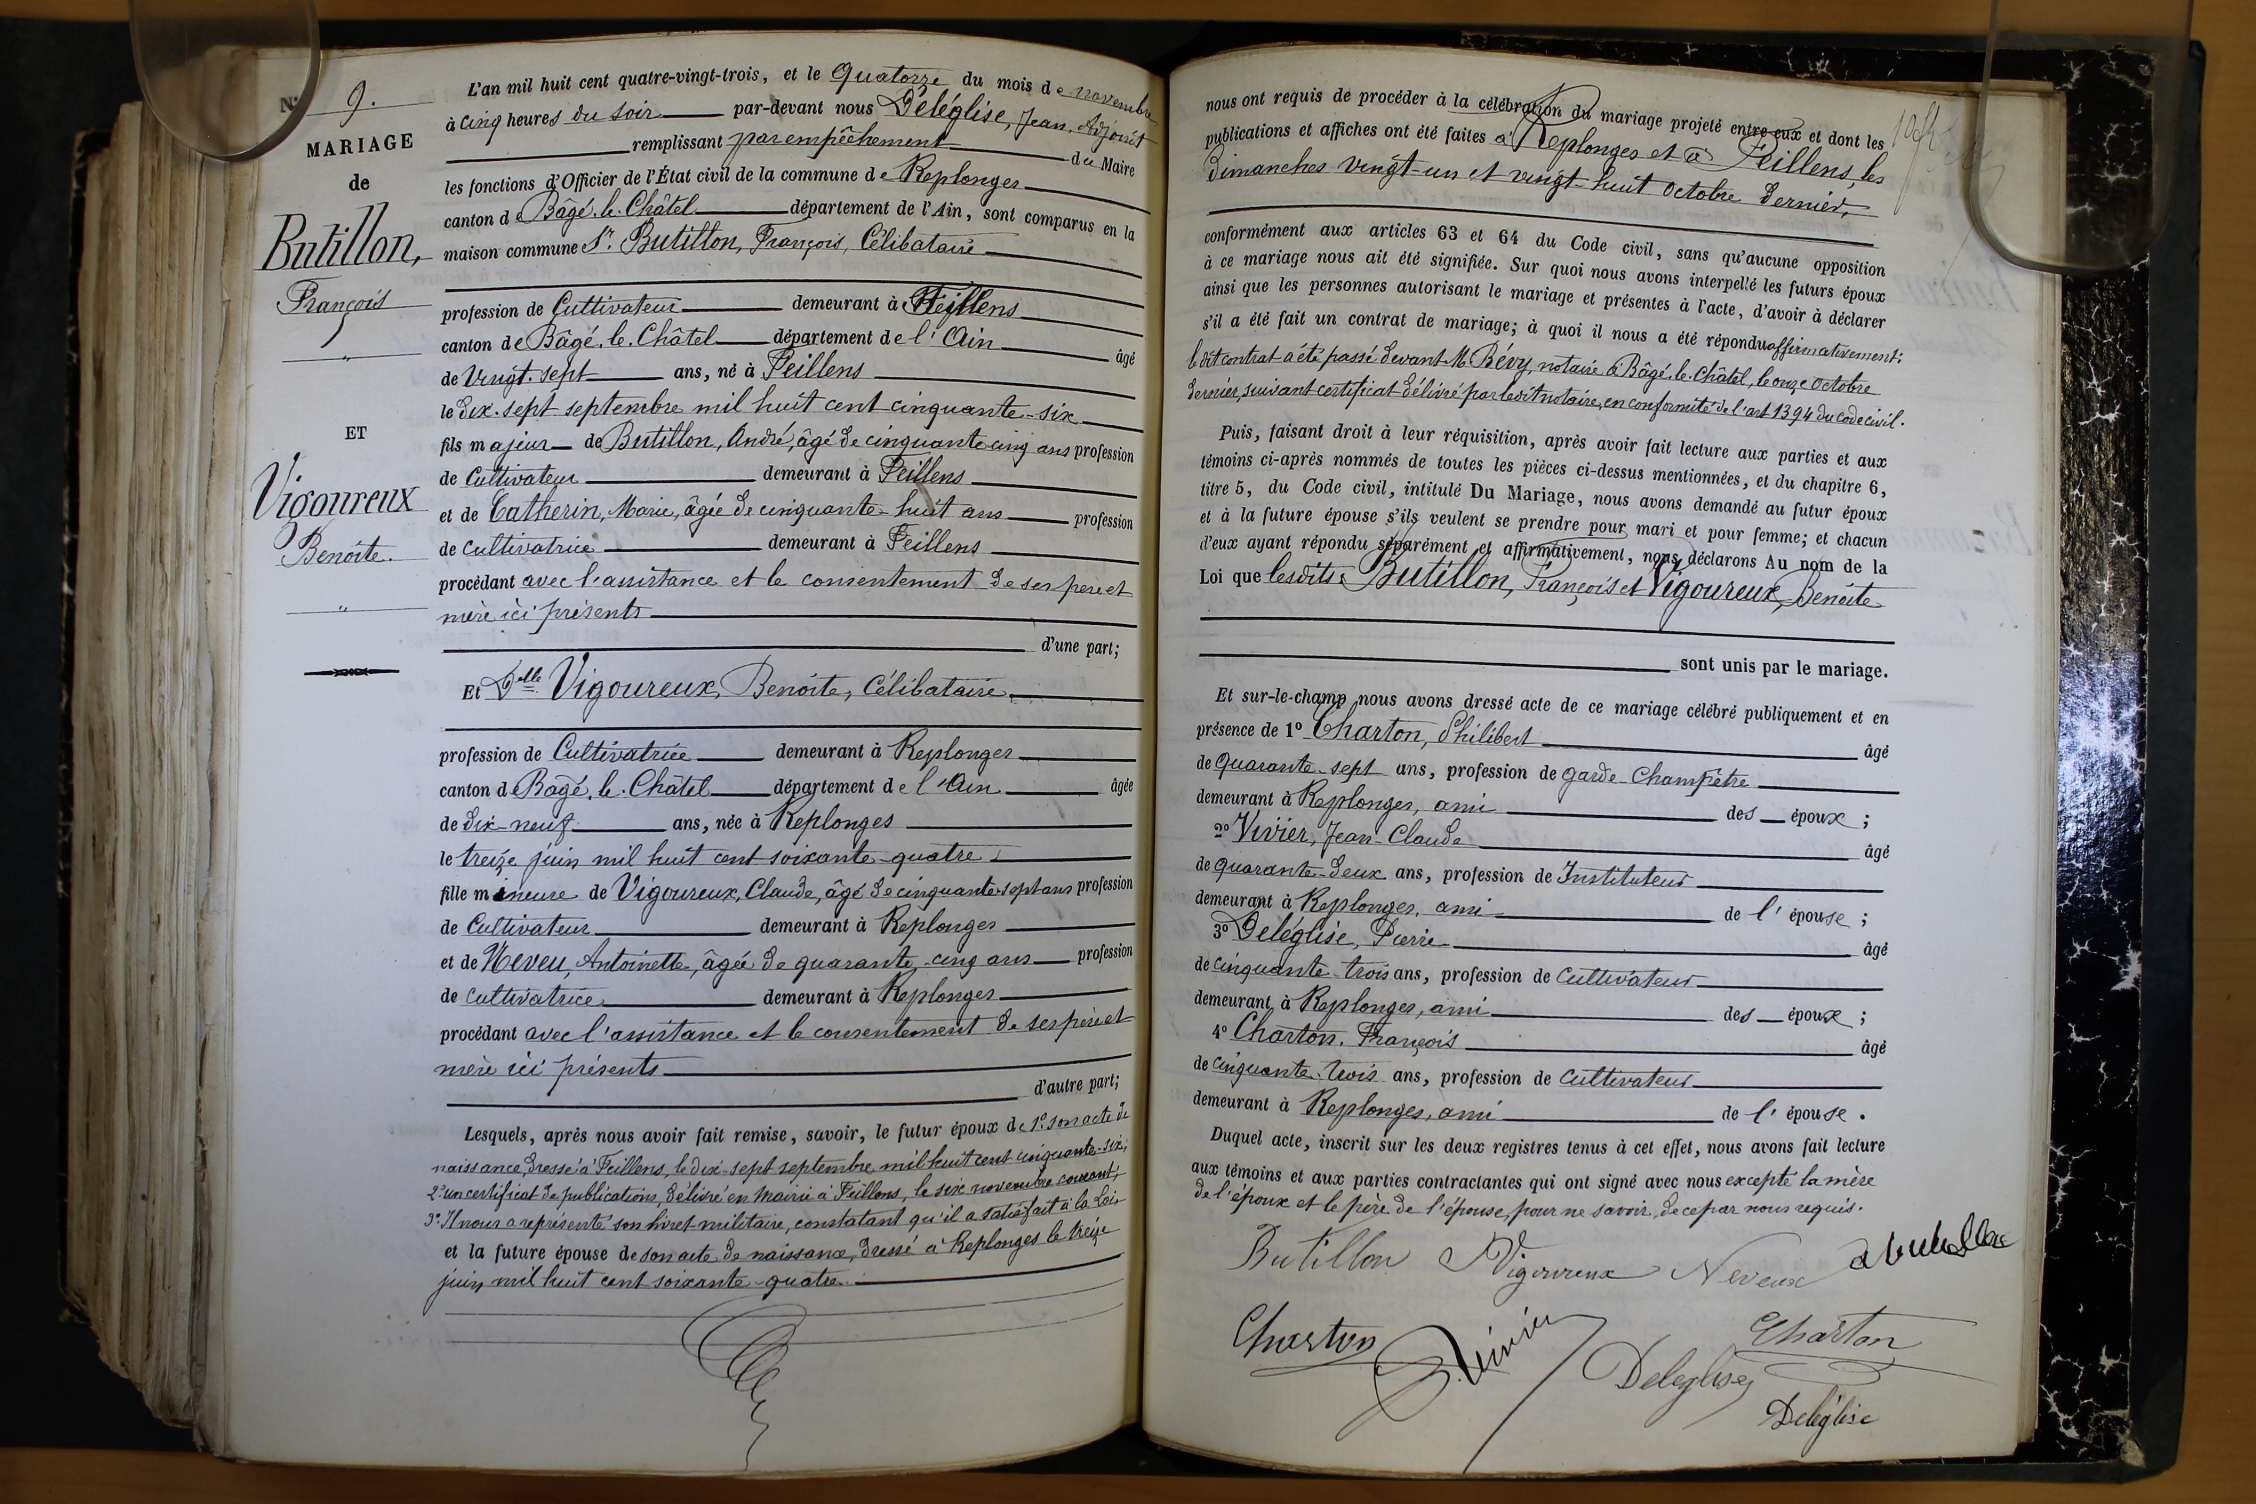 N° 9.
MARIAGE
de
Butillon,
François
"
ET
Vigoureux
Benoite.
"
L'an mil huit cent quatre-vingt-trois, et le Quatorze du mois de novembre
à cinq heures du soir par-devant nous Déléglise, Jean, Adjoint
remplissant par empêchement du Maire
les fonctions d'Officier de l'État civil de la commune de Replonges
canton de Bâgé-le-Châtel département de l'Ain, sont comparus en la
maison commune Sr. Butillon, François, Célibataire
profession de Cultivateur demeurant à Feillens
canton de Bâgé-le-Châtel département de l'Ain âgé
de Vingt-sept ans, né à Feillens
le dix-sept septembre mil huit cent cinquante-six
fils majeur de Butillon, André, âgé de cinquante cinq ans profession
de Cultivateur demeurant à Feillens
et de Catherin, Marie, âgée de cinquante-huit ans profession
de cultivatrice demeurant à Feillens
procédant avec l'assistance et le consentement de ses père et
mère ici présents
d'une part;
Et Delle Vigoureux, Benoite, Célibataire
profession de Cultivatrice demeurant à Replonges
canton d Bâgé-le-Châtel département de l'Ain âgée
de dix-neuf ans, née à Replonges
le treize juin mil huit cent soixante-quatre
fille mineure de Vigoureux, Claude, âgé de cinquante-sept ans profession
de Cultivateur demeurant à Replonges
et de Neveu, Antoinette, âgée de quarante-cinq ans profession
de cultivatrice demeurant à Replonges
procédant avec l'assistance et le consentement de ses père et
mère ici présents
d'autre part;
Lesquels, après nous avoir fait remise, savoir, le futur époux de 1° son acte de
naissance, dressé à Feillens, le dix-sept septembre mil huit cent cinquante-six;
2° un certificat de publications, délivré en Mairie à Feillens, le six novembre courant;
3° Il nous a représenté son livret militaire, constatant qu'il a satisfait à la Loi,
et la future épouse de son acte de naissance, dressé à Replonges le treize
juin mil huit cent soixante-quatre
nous ont requis de procéder à la célébration du mariage projeté entre eux et dont les
publications et affiches ont été faites à Replonges et à Feillens, les
dimanches vingt-un et vingt-huit octobre dernier,
conformément aux articles 63 et 64 du Code civil, sans qu'aucune opposition
à ce mariage nous ait été signifiée. Sur quoi nous avons interpellé les futurs époux
ainsi que les personnes autorisant le mariage et présentes à l'acte, d'avoir à déclarer
s'il a été fait un contrat de mariage; à quoi il nous a été répondu affirmativement;
le dit contrat a été passé devant Me Bévy, notaire à Bâgé-le-Châtel, le onze octobre
dernier, suivant certificat délivré par ledit notaire, en conformité de l'art 1394 du code civil.
Puis, faisant droit à leur réquisition, après avoir fait lecture aux parties et aux
témoins ci-après nommés de toutes les pièces ci-dessus mentionnées, et du chapitre 6,
titre 5, du Code civil, intitulé Du Mariage, nous avons demandé au futur époux
et à la future épouse s'ils veulent se prendre pour mari et pour femme; et chacun
d'eux ayant répondu séparément et affirmativement, nous déclarons Au nom de la
Loi que lesdits: Butillon, François et Vigoureux, Benoite
sont unis par le mariage.
Et sur-le-champ nous avons dressé acte de ce mariage célébré publiquement et en
présence de 1° Charton, Philibert âgé
de quarante-sept ans, profession de garde-Champêtre
demeurant à Replonges, ami des époux;
2° Vivier, Jean-Claude âgé
de quarante-deux ans, profession de Instituteur
demeurant à Replonges, ami de l'épouse;
3° Déléglise, Pierre âgé
de cinquante-trois ans, profession de cultivateur
demeurant à Replonges, ami des époux;
4° Charton, François âgé
de cinquante-trois ans, profession de cultivateur
demeurant à Replonges, ami de l'épouse.
Duquel acte, inscrit sur les deux registres tenus à cet effet, nous avons fait lecture
aux témoins et aux parties contractantes qui ont signé avec nous excepté la mère
de l'époux et le père de l'épouse, pour ne savoir, de ce par nous requis.
Butillon Vigoureux Neveux a butillon
Charton Vivier Deleglise Charton
Deléglise